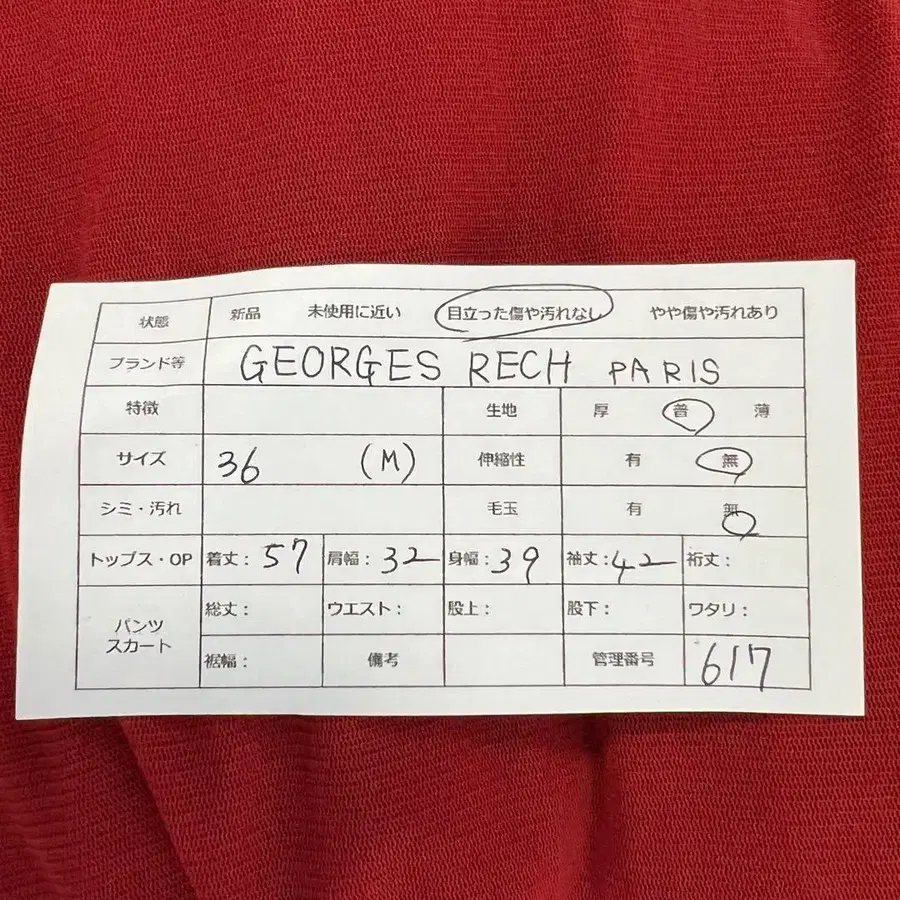 状態 新品 未使用に近い 目立った傷や汚れなし やや傷や汚れあり
ブランド等 GEORGES RECH PARIS
特徴 生地 厚 普 薄
サイズ 36 (M) 伸縮性 有 無
シミ・汚れ 毛玉 有 無
トップス・OP 着丈: 57 肩幅: 32 身幅: 39 袖丈: 42 裄丈:
パンツ スカート 総丈: ウエスト: 股上: 股下: ワタリ:
裾幅: 備考 管理番号 617